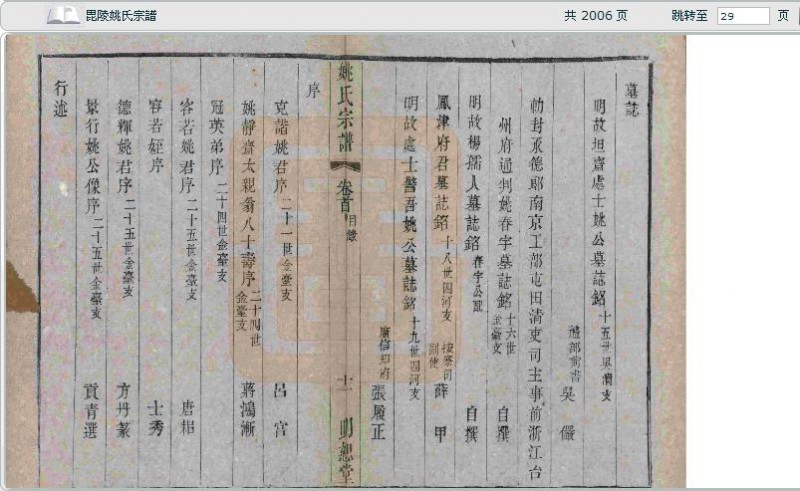 毘陵姚氏宗譜
共 2006 页
跳转至 29 页
墓誌
明故坦齋處士姚公墓誌銘 十五世吳瀆支 禮部尚書 吳儼
勅封承德郎南京工部屯田清吏司主事前浙江台
州府通判姚春宇墓誌銘 十六世金臺支 自撰
明故楊孺人墓誌銘 春宇公配 自撰
鳳津府君墓誌銘 十八世四河支 按察司副使 薛甲
明故處士警吾姚公墓誌銘 十九世四河支 廣信知府 張履正
姚氏宗譜 卷首 目錄 十一 明恕堂
序
克諧姚君序 二十一世金臺支 呂宮
姚靜齋太親翁八十壽序 二十四世金臺支 蔣鴻漸
冠英弟序 二十四世金臺支
容若姚君序 二十五世金臺支 唐
容若姪序 士秀
德輝姚君序 二十五世金臺支 方丹篆
景行姚公像序 二十五世金臺支 貢青選
行述